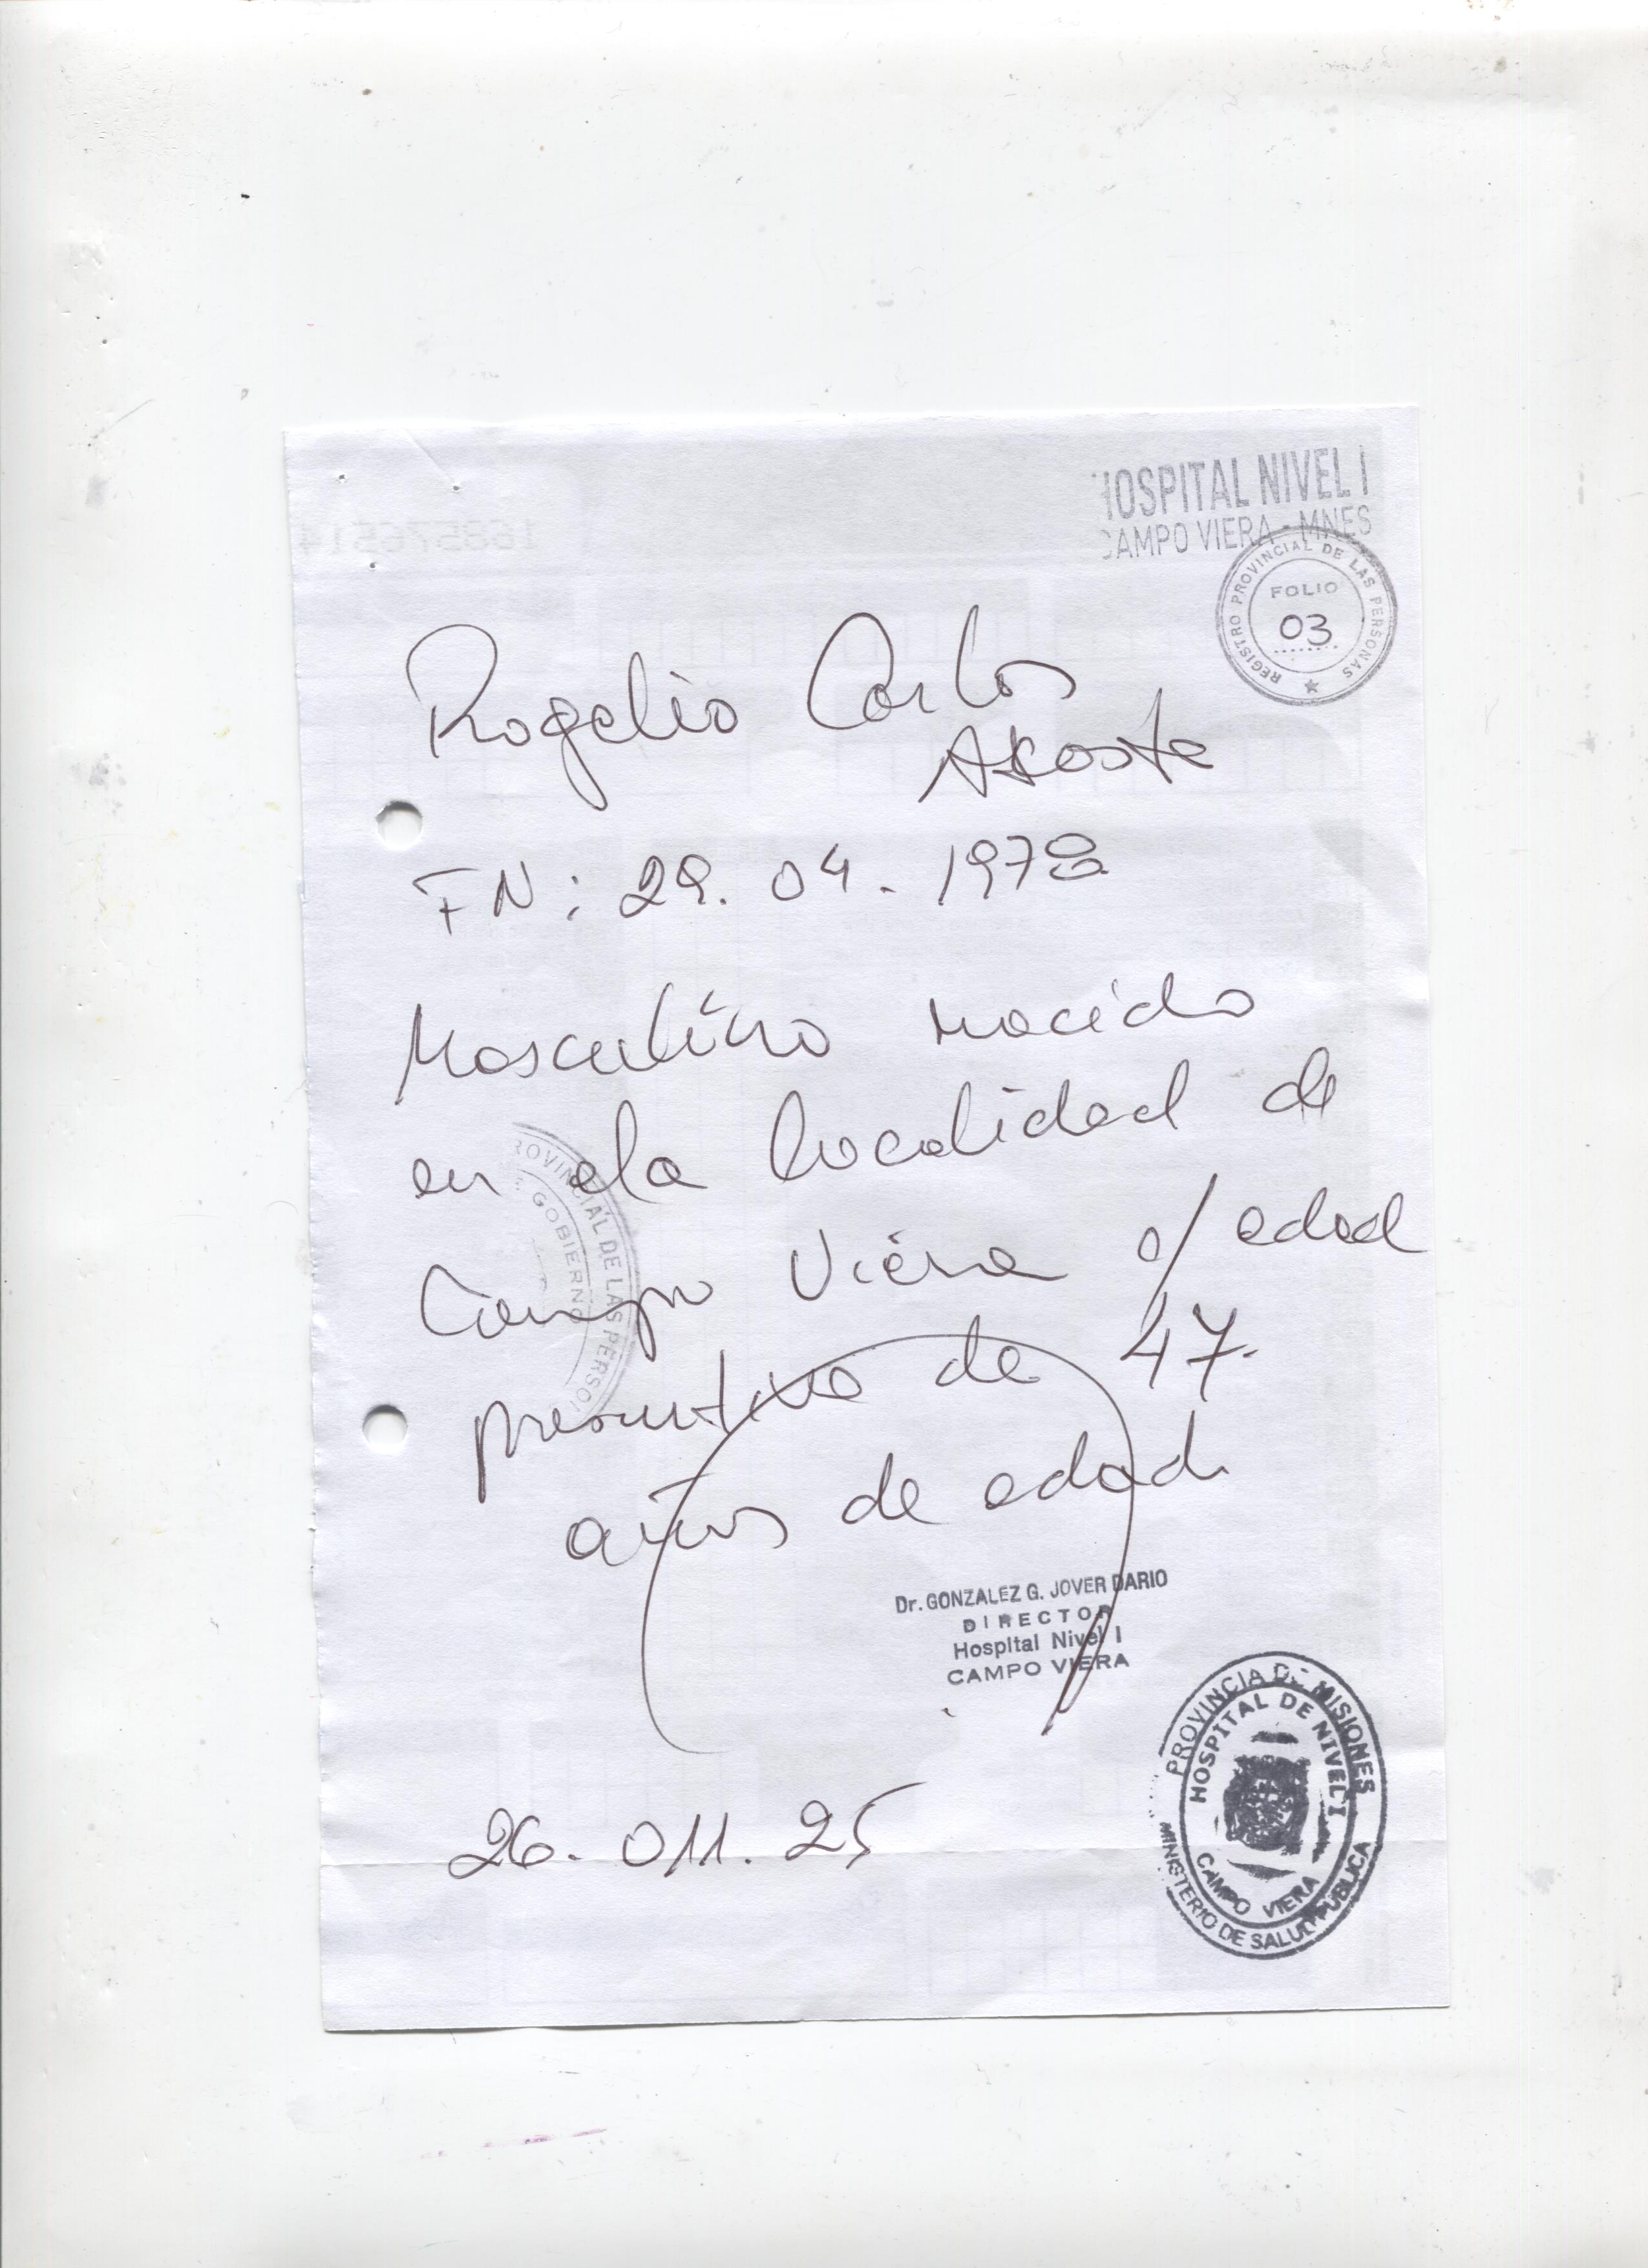 HOSPITAL NIVEL I
CAMPO VIERA - MNES
REGISTRO PROVINCIAL DE LAS PERSONAS
FOLIO
03
Rogelio Carlos
Acosta
FN: 29. 04. 1978
Masculino nacido
en la localidad de
Campo Viera c/ edad
presuntiva de 47
años de edad
ROVINCIAL DE LAS PERSO
GOBIERNO
Dr. GONZALEZ G. JOVER DARIO
DIRECTOR
Hospital Nivel I
CAMPO VIERA
26. 011. 25
PROVINCIA DE MISIONES
HOSPITAL DE NIVEL I
CAMPO VIERA
MINISTERIO DE SALUD PUBLICA